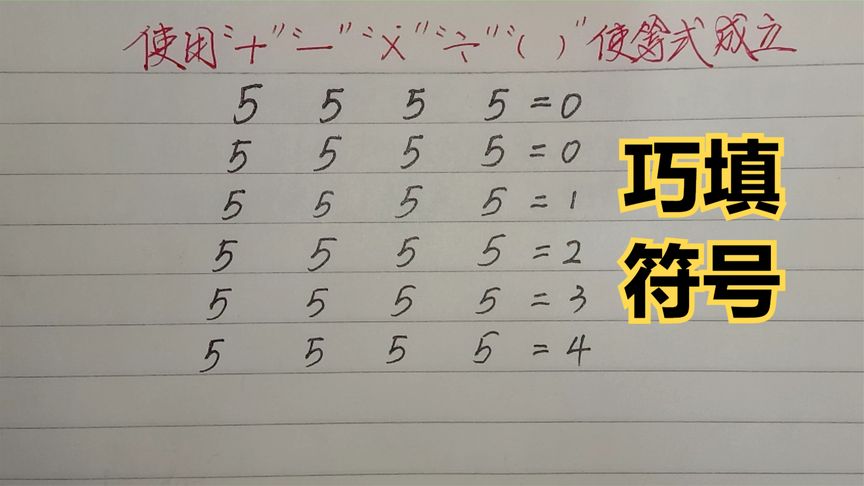 使用“+”“—”“×”“÷”“( )”使等式成立
5 5 5 5 = 0
5 5 5 5 = 0
5 5 5 5 = 1
5 5 5 5 = 2
5 5 5 5 = 3
5 5 5 5 = 4
巧填
符号